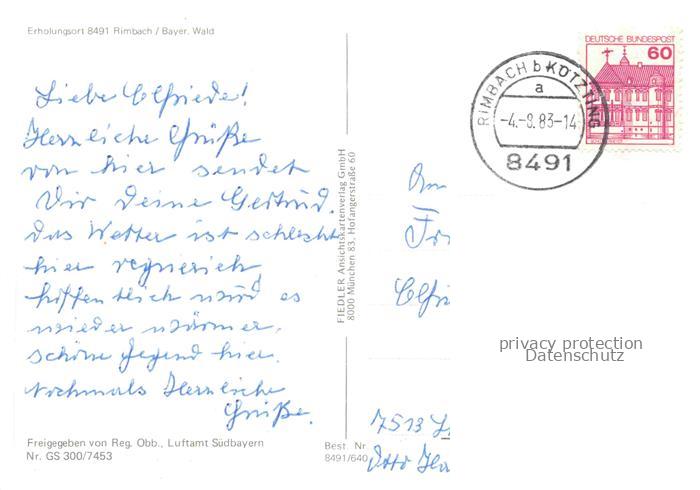 Erholungsort 8491 Rimbach / Bayer. Wald
Liebe Elfriede!
Herzliche Grüße
von hier sendet
Dir Deine Gertrud.
das Wetter ist schlecht
hier regnerich,
hoffentlich wird es
wieder wärmer,
schöne Gegend hier.
Nochmals Herzliche
Grüße.
Freigegeben von Reg. Obb., Luftamt Südbayern
Nr. GS 300/7453
FIEDLER Ansichtskartenverlag GmbH
8000 München 83, Hofangerstraße 60
Best. Nr
8491/640
DEUTSCHE BUNDESPOST
60
RIMBACH b KÖTZTING
a
-4.-8.83-14
8491
An
Fr
Elfri
7513
Otto
privacy protection
Datenschutz